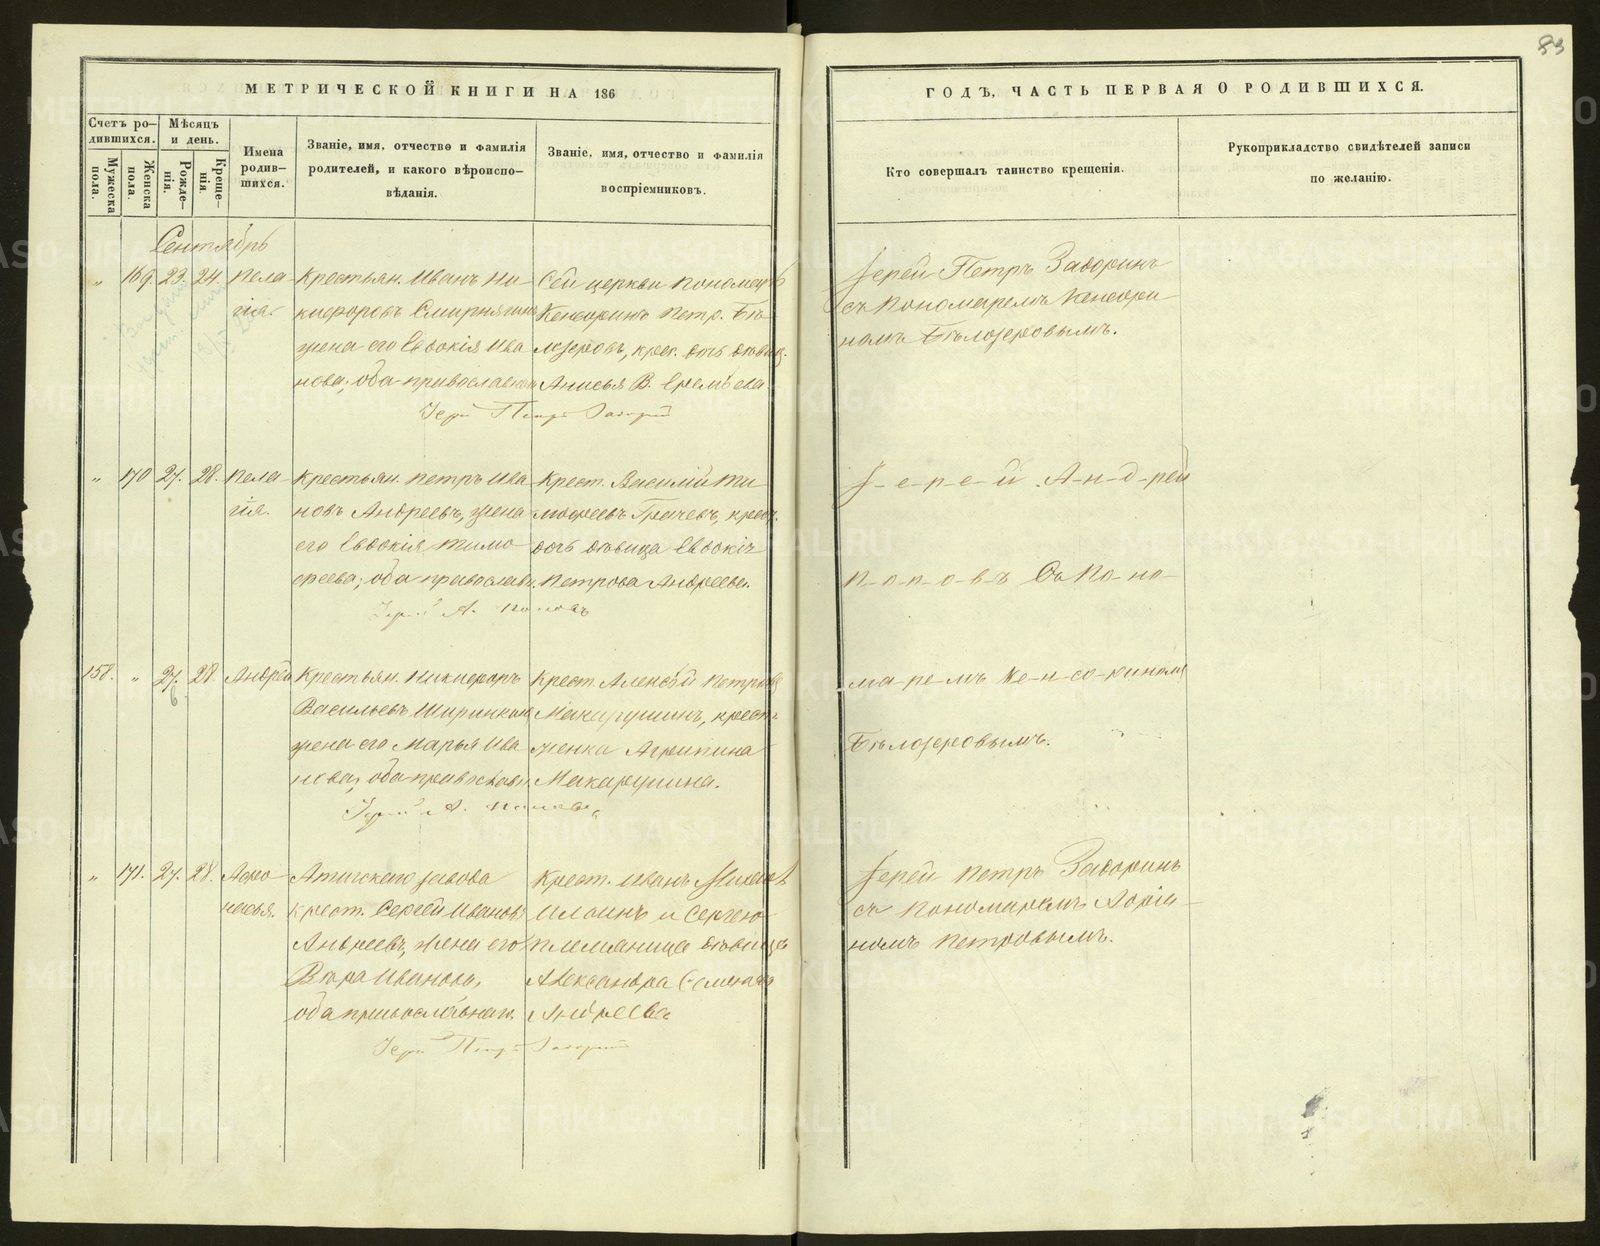 83
МЕТРИЧЕСКОЙ КНИГИ НА 186
ГОДЪ, ЧАСТЬ ПЕРВАЯ О РОДИВШИХСЯ.
Счетъ ро-
дившихся.
Мужеска
пола.
Женска
пола.
Мѣсяцъ
и день.
Рожде-
нія.
Креще-
нія.
Имена
родив-
шихся.
Званіе, имя, отчество и фамилія
родителей, и какого вѣроиспо-
вѣданія.
Званіе, имя, отчество и фамилія
воспріемниковъ.
Кто совершалъ таинство крещенія.
Рукоприкладство свидѣтелей записи
по желанію.
Сентябрь
„ 169. 23. 24. Пела-
гія.
Крестьян. Иванъ Ни-
кифоровъ Смирнягинъ
жена его Евдокія Ива
нова; оба православнаго
Сей церкви пономарь
Кенсоринъ Петр. Бѣ
лозеровъ, крес. дочь дѣвиц.
Анисья В. Еремѣева.
Іерей Петръ Заворинъ
съ Пономаремъ Кенсори
номъ Бѣлозеровымъ.
„ 170 27. 28. Пела-
гія.
Крестьян. Петръ Ива
новъ Андреевъ, жена
его Евдокія Тимо
феева; оба православн.
Крест. Василій Ти
мофеевъ Грачевъ, крест.
дочь дѣвица Евдокія
Петрова Андреева.
Іерей А. Поповъ
І-е-р-е-й А-н-д-рей
П-о-п-о-в-ъ Съ По-но-
ма-ре-мъ Ке-н-со-риномъ
Бѣлозеровымъ.
158. „ 27. 28. Андрей
Крестьян. Никифоръ
Васильевъ Ширинкинъ
жена его Марья Ива
нова, оба православн.
Крест. Алексѣй Петровъ
Макарушинъ, крест.
женка Агрипина
Макарушина.
Іерей А. Поповъ
„ 171. 27. 28. Афо
насья.
Атигскаго завода
крест. Сергѣй Ивановъ
Андреевъ, жена его
Вѣра Иванова,
оба православнаго.
Крест. Иванъ
Илоинъ и Сергѣю
племянница дѣвица
Александра Семенова
Андреева
Іерей Петръ Заворинъ
Іерей Петръ Заворинъ
съ Пономаремъ
номъ Петровымъ.